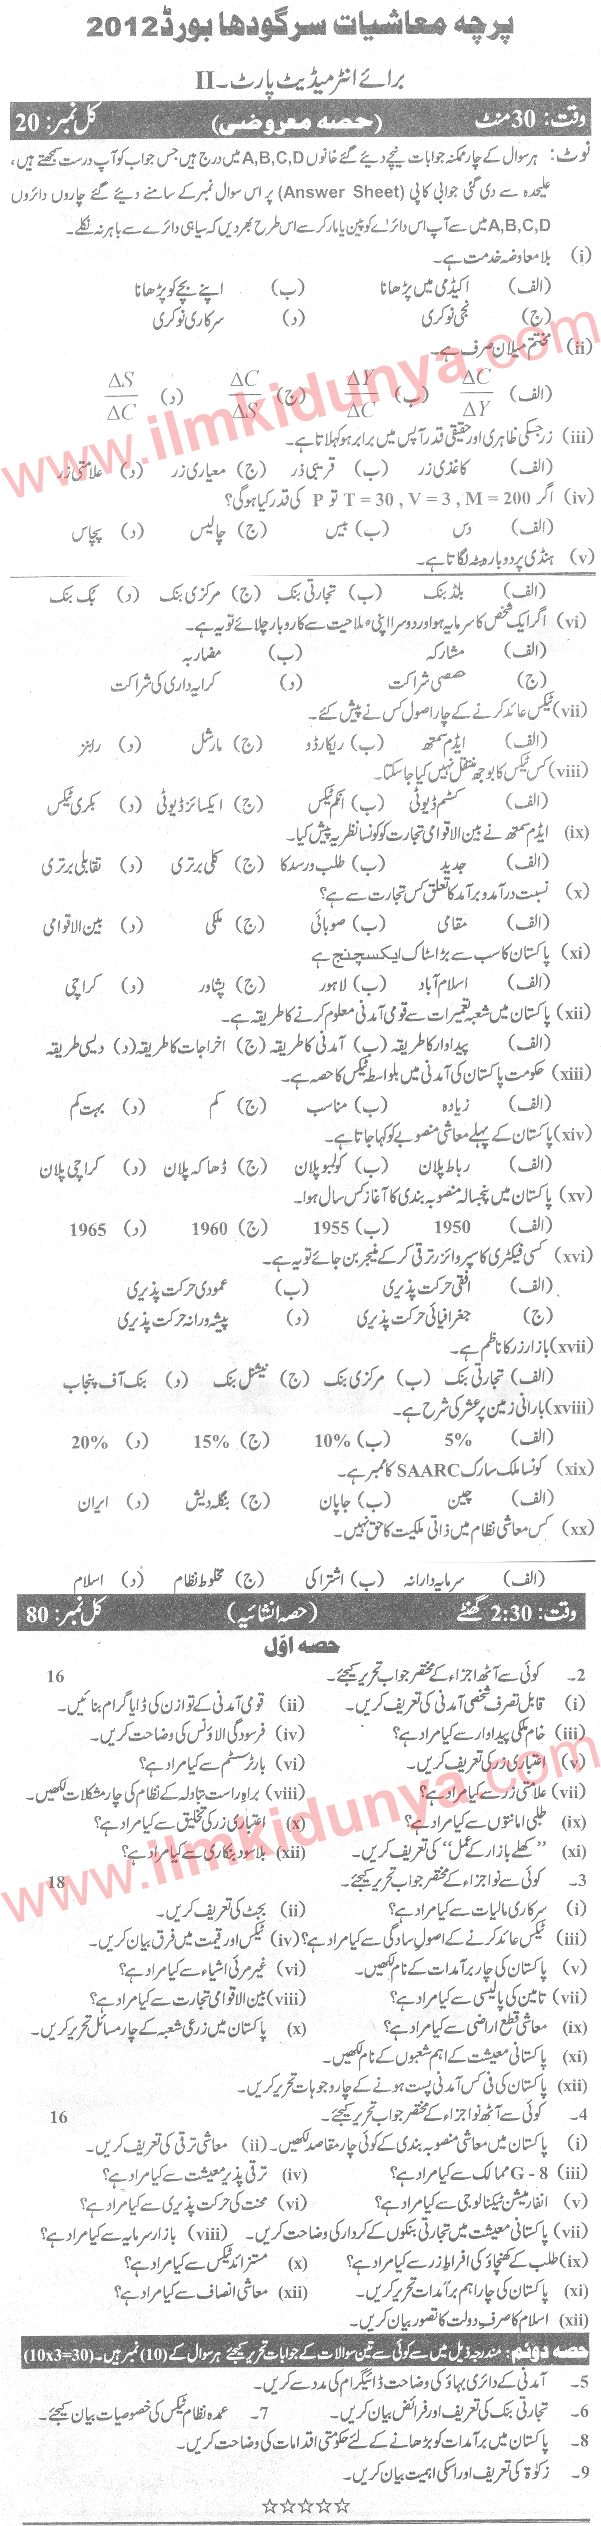 پرچہ معاشیات سرگودھا بورڈ 2012
برائے انٹرمیڈیٹ پارٹ۔ II
وقت: 30 منٹ (حصہ معروضی) کل نمبر: 20
نوٹ: ہر سوال کے چار ممکنہ جوابات نیچے دیئے گئے خانوں A,B,C,D میں درج ہیں جس جواب کو آپ درست سمجھتے ہیں،
علیحدہ سے دی گئی جوابی کاپی (Answer Sheet) پر اس سوال نمبر کے سامنے دیئے گئے چاروں دائروں
A,B,C,D میں سے آپ اس دائرے کو پین یا مارکر سے اس طرح بھر دیں کہ سیاہی دائرے سے باہر نہ نکلے۔
(i) بلا معاوضہ خدمت ہے۔
(الف) اکیڈمی میں پڑھانا (ب) اپنے بچے کو پڑھانا
(ج) نجی نوکری (د) سرکاری نوکری
(ii) مختتم میلان صرف ہے۔
(الف) ΔC/ΔY (ب) ΔY/ΔC (ج) ΔC/ΔS (د) ΔS/ΔC
(iii) زر جسکی ظاہری اور حقیقی قدر آپس میں برابر ہو کہلاتا ہے۔
(الف) کاغذی زر (ب) قریبی ذر (ج) معیاری زر (د) علامتی زر
(iv) اگر T = 30 , V = 3 , M = 200 تو P کی قدر کیا ہو گی؟
(الف) دس (ب) بیس (ج) چالیس (د) پچاس
(v) ہنڈی پر دوبارہ بٹہ لگاتا ہے۔
(الف) بلڈ بنک (ب) تجارتی بنک (ج) مرکزی بنک (د) بُک بنک
(vi) اگر ایک شخص کا سرمایہ ہو اور دوسرا اپنی صلاحیت سے کاروبار چلائے تو یہ ہے۔
(الف) مشارکہ (ب) مضاربہ
(ج) حصصی شراکت (د) کرایہ داری کی شراکت
(vii) ٹیکس عائد کرنے کے چار اصول کس نے پیش کئے۔
(الف) ایڈم سمتھ (ب) ریکارڈو (ج) مارشل (د) رابنز
(viii) کس ٹیکس کا بوجھ منتقل نہیں کیا جا سکتا۔
(الف) کسٹم ڈیوٹی (ب) انکم ٹیکس (ج) ایکسائز ڈیوٹی (د) بکری ٹیکس
(ix) ایڈم سمتھ نے بین الاقوامی تجارت کو کونسا نظریہ پیش کیا۔
(الف) جدید (ب) طلب و رسد کا (ج) کلی برتری (د) تقابلی برتری
(x) نسبت درآمد و برآمد کا تعلق کس تجارت سے ہے؟
(الف) مقامی (ب) صوبائی (ج) ملکی (د) بین الاقوامی
(xi) پاکستان کا سب سے بڑا سٹاک ایکسچنج ہے
(الف) اسلام آباد (ب) لاہور (ج) پشاور (د) کراچی
(xii) پاکستان میں شعبہ تعمیرات سے قومی آمدنی معلوم کرنے کا طریقہ ہے۔
(الف) پیداوار کا طریقہ (ب) آمدنی کا طریقہ (ج) اخراجات کا طریقہ (د) دیسی طریقہ
(xiii) حکومت پاکستان کی آمدنی میں بلواسط ٹیکس کا حصہ ہے۔
(الف) زیادہ (ب) مناسب (ج) کم (د) بہت کم
(xiv) پاکستان کے پہلے معاشی منصوبے کو کہا جاتا ہے۔
(الف) رباط پلان (ب) کولمبو پلان (ج) ڈھاکہ پلان (د) کراچی پلان
(xv) پاکستان میں پنجسالہ منصوبہ بندی کا آغاز کس سال ہوا۔
(الف) 1950 (ب) 1955 (ج) 1960 (د) 1965
(xvi) کسی فیکٹری کا سپروائزر ترقی کر کے منیجر بن جائے تو یہ ہے۔
(الف) افقی حرکت پذیری (ب) عمودی حرکت پذیری
(ج) جغرافیائی حرکت پذیری (د) پیشہ ورانہ حرکت پذیری
(xvii) بازار زر کا ناظم ہے۔
(الف) تجارتی بنک (ب) مرکزی بنک (ج) نیشنل بنک (د) بنک آف پنجاب
(xviii) بارانی زمین پر عشر کی شرح ہے۔
(الف) 5% (ب) 10% (ج) 15% (د) 20%
(xix) کونسا ملک سارک SAARC کا ممبر ہے۔
(الف) چین (ب) جاپان (ج) بنگلہ دیش (د) ایران
(xx) کس معاشی نظام میں ذاتی ملکیت کا حق نہیں۔
(الف) سرمایہ دارانہ (ب) اشتراکی (ج) مخلوط نظام (د) اسلام
وقت: 2:30 گھنٹے (حصہ انشائیہ) کل نمبر: 80
حصہ اوّل
2۔ کوئی سے آٹھ اجزاء کے مختصر جواب تحریر کیجئے۔ 16
(i) قابل تصرف شخصی آمدنی کی تعریف کریں۔ (ii) قومی آمدنی کے توازن کی ڈایا گرام بنائیں۔
(iii) خام ملکی پیداوار سے کیا مراد ہے؟ (iv) فرسودگی الاؤنس کی وضاحت کریں۔
(v) اعتباری زر کی تعریف کریں۔ (vi) بارٹر سسٹم سے کیا مراد ہے؟
(vii) علامتی زر سے کیا مراد ہے؟ (viii) براہ راست تبادلہ کے نظام کی چار مشکلات لکھیں۔
(ix) طلبی امانتوں سے کیا مراد ہے؟ (x) اعتباری زر کی تخلیق سے کیا مراد ہے؟
(xi) "کھلے بازار کے عمل" کی تعریف کریں۔ (xii) بلا سود بنکاری سے کیا مراد ہے؟
3۔ کوئی سے نو اجزاء کے مختصر جواب تحریر کیجئے۔ 18
(i) سرکاری مالیات سے کیا مراد ہے؟ (ii) بجٹ کی تعریف کریں۔
(iii) ٹیکس عائد کرنے کے اصول سادگی سے کیا مراد ہے؟ (iv) ٹیکس اور قیمت میں فرق بیان کریں۔
(v) پاکستان کی چار برآمدات کے نام لکھیں۔ (vi) غیر مرئی اشیاء سے کیا مراد ہے؟
(vii) تامین کی پالیسی سے کیا مراد ہے؟ (viii) بین الاقوامی تجارت سے کیا مراد ہے؟
(ix) معاشی قطع اراضی سے کیا مراد ہے؟ (x) پاکستان میں زرعی شعبہ کے چار مسائل تحریر کریں۔
(xi) پاکستانی معیشت کے اہم شعبوں کے نام لکھیں۔
(xii) پاکستان کی فی کس آمدنی پست ہونے کے چار وجوہات تحریر کریں۔
4۔ کوئی سے آٹھ نو اجزاء کے مختصر جواب تحریر کیجئے۔ 16
(i) پاکستان میں معاشی منصوبہ بندی کے کوئی چار مقاصد لکھیں۔ (ii) معاشی ترقی کی تعریف کریں۔
(iii) G - 8 ممالک سے کیا مراد ہے؟ (iv) ترقی پذیر معیشت سے کیا مراد ہے؟
(v) انفارمیشن ٹیکنالوجی سے کیا مراد ہے؟ (vi) محنت کی حرکت پذیری سے کیا مراد ہے؟
(vii) پاکستانی معیشت میں تجارتی بنکوں کے کردار کی وضاحت کریں۔ (viii) بازار سرمایہ سے کیا مراد ہے؟
(ix) طلب کے کھنچاؤ کی افراط زر سے کیا مراد ہے؟ (x) متزائد ٹیکس سے کیا مراد ہے؟
(xi) پاکستان کی چار اہم برآمدات تحریر کریں۔ (xii) معاشی انصاف سے کیا مراد ہے؟
(xii) اسلام کا صرف دولت کا تصور بیان کریں۔
حصہ دوئم: مندرجہ ذیل میں سے کوئی سے تین سوالات کے جوابات تحریر کیجئے ہر سوال کے (10) نمبر ہیں۔ (10x3=30)
5۔ آمدنی کے دائری بہاؤ کی وضاحت ڈائیگرام کی مدد سے کریں۔
6۔ تجارتی بنک کی تعریف اور فرائض بیان کریں۔ 7۔ عمدہ نظام ٹیکس کی خصوصیات بیان کیجئے۔
8۔ پاکستان میں برآمدات کو بڑھانے کے لئے حکومتی اقدامات کی وضاحت کریں۔
9۔ زکوٰۃ کی تعریف اور اسکی اہمیت بیان کریں۔
www.ilmkidunya.com
www.ilmkidunya.com